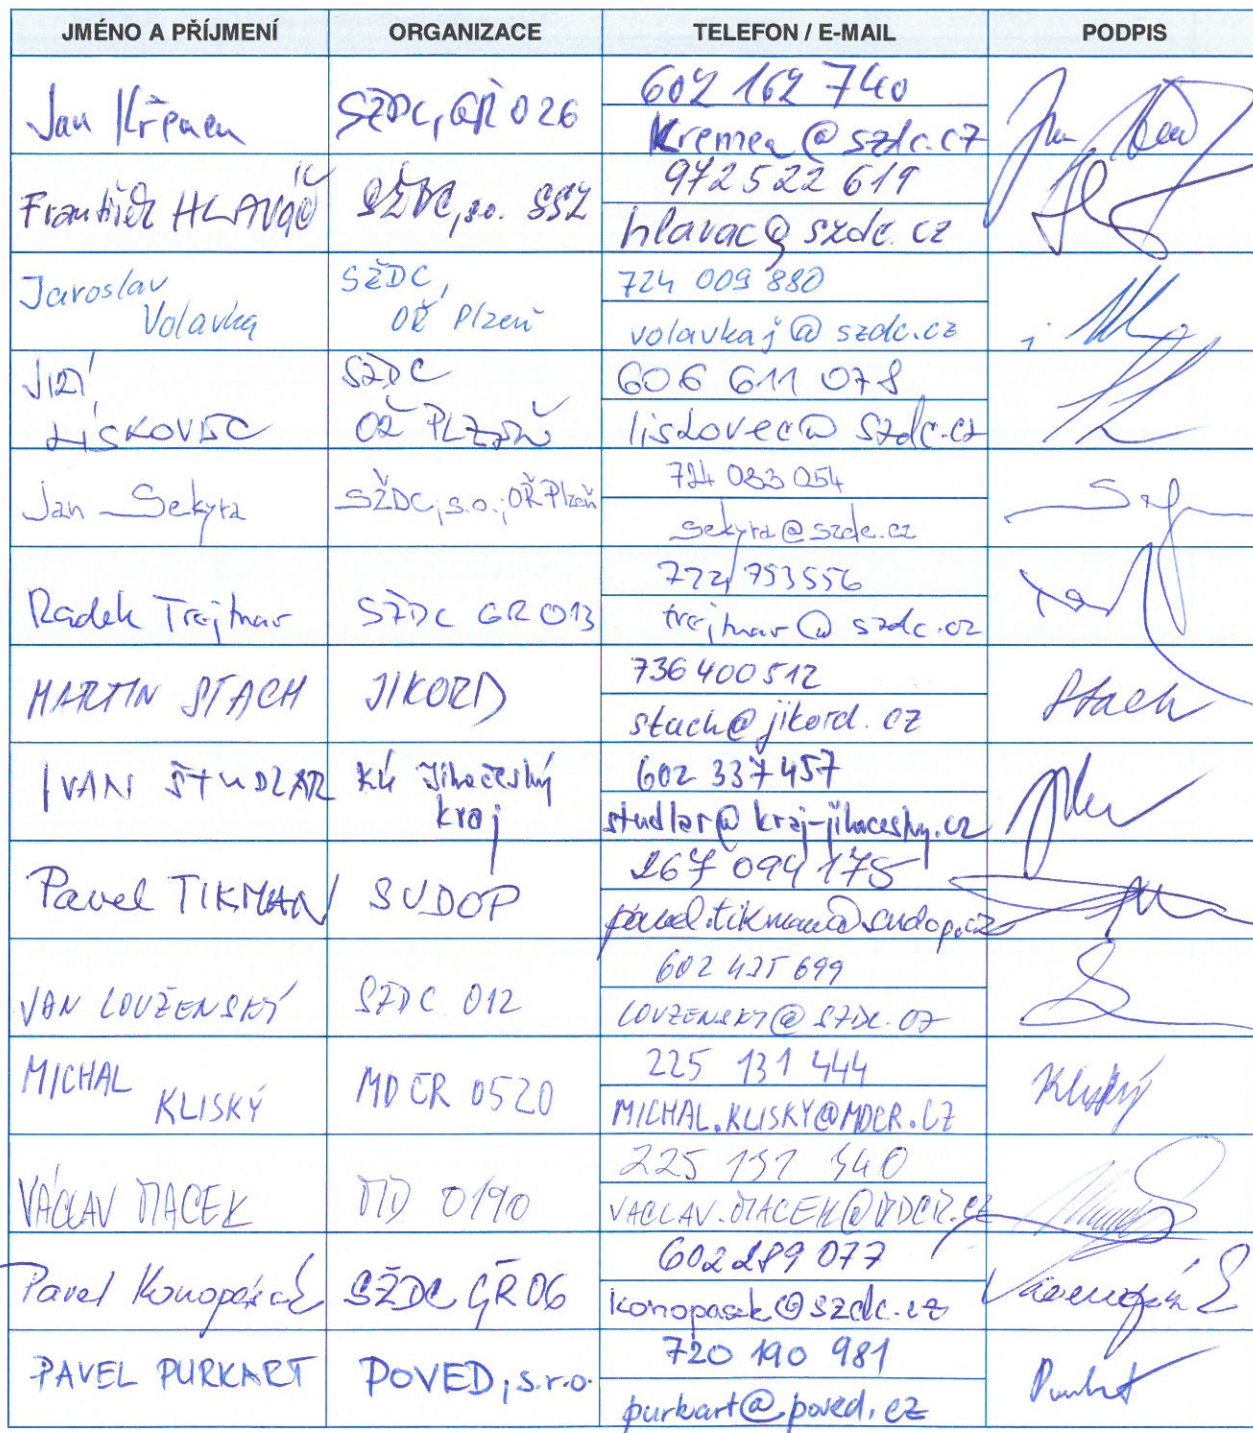 JMÉNO A PŘÍJMENÍ ORGANIZACE TELEFON / E-MAIL PODPIS
Jan Křemen SŽDC, GŘ O26 602 162 740
kremen@szdc.cz
František HLAVÁČ SŽDC, s.o. SSZ 972 522 619
hlavac@szdc.cz
Jaroslav SŽDC, 724 009 880
Volavka OŘ Plzeň volavkaj@szdc.cz
JIŘÍ SŽDC 606 611 078
LÍSKOVEC OŘ PLZEŇ liskovec@szdc.cz
Jan Sekyra SŽDC, s.o., OŘ Plzeň 724 083 054
sekyra@szdc.cz
Radek Trejtnar SŽDC GŘ O13 772 753556
trejtnar@szdc.cz
MARTIN STACH JIKORD 736 400 512 Stach
stach@jikord.cz
IVAN ŠTUDLAR KÚ Jihočeský 602 337 457
kraj studlar@kraj-jihocesky.cz
Pavel TIKMAN SUDOP 267 094 175
pavel.tikman@sudop.cz
JAN LOUŽENSKÝ SŽDC O12 602 435 699
LOUZENSKY@SZDC.CZ
MICHAL MD ČR O520 225 131 444 Kliský
KLISKÝ MICHAL.KLISKY@MDCR.CZ
VÁCLAV MACEK MD O190 225 131 340
VACLAV.MACEK@MDCR.CZ
Pavel Konopásek SŽDC GŘ O6 602 289 077
konopasek@szdc.cz
PAVEL PURKART POVED, s.r.o. 720 190 981
purkart@poved.cz